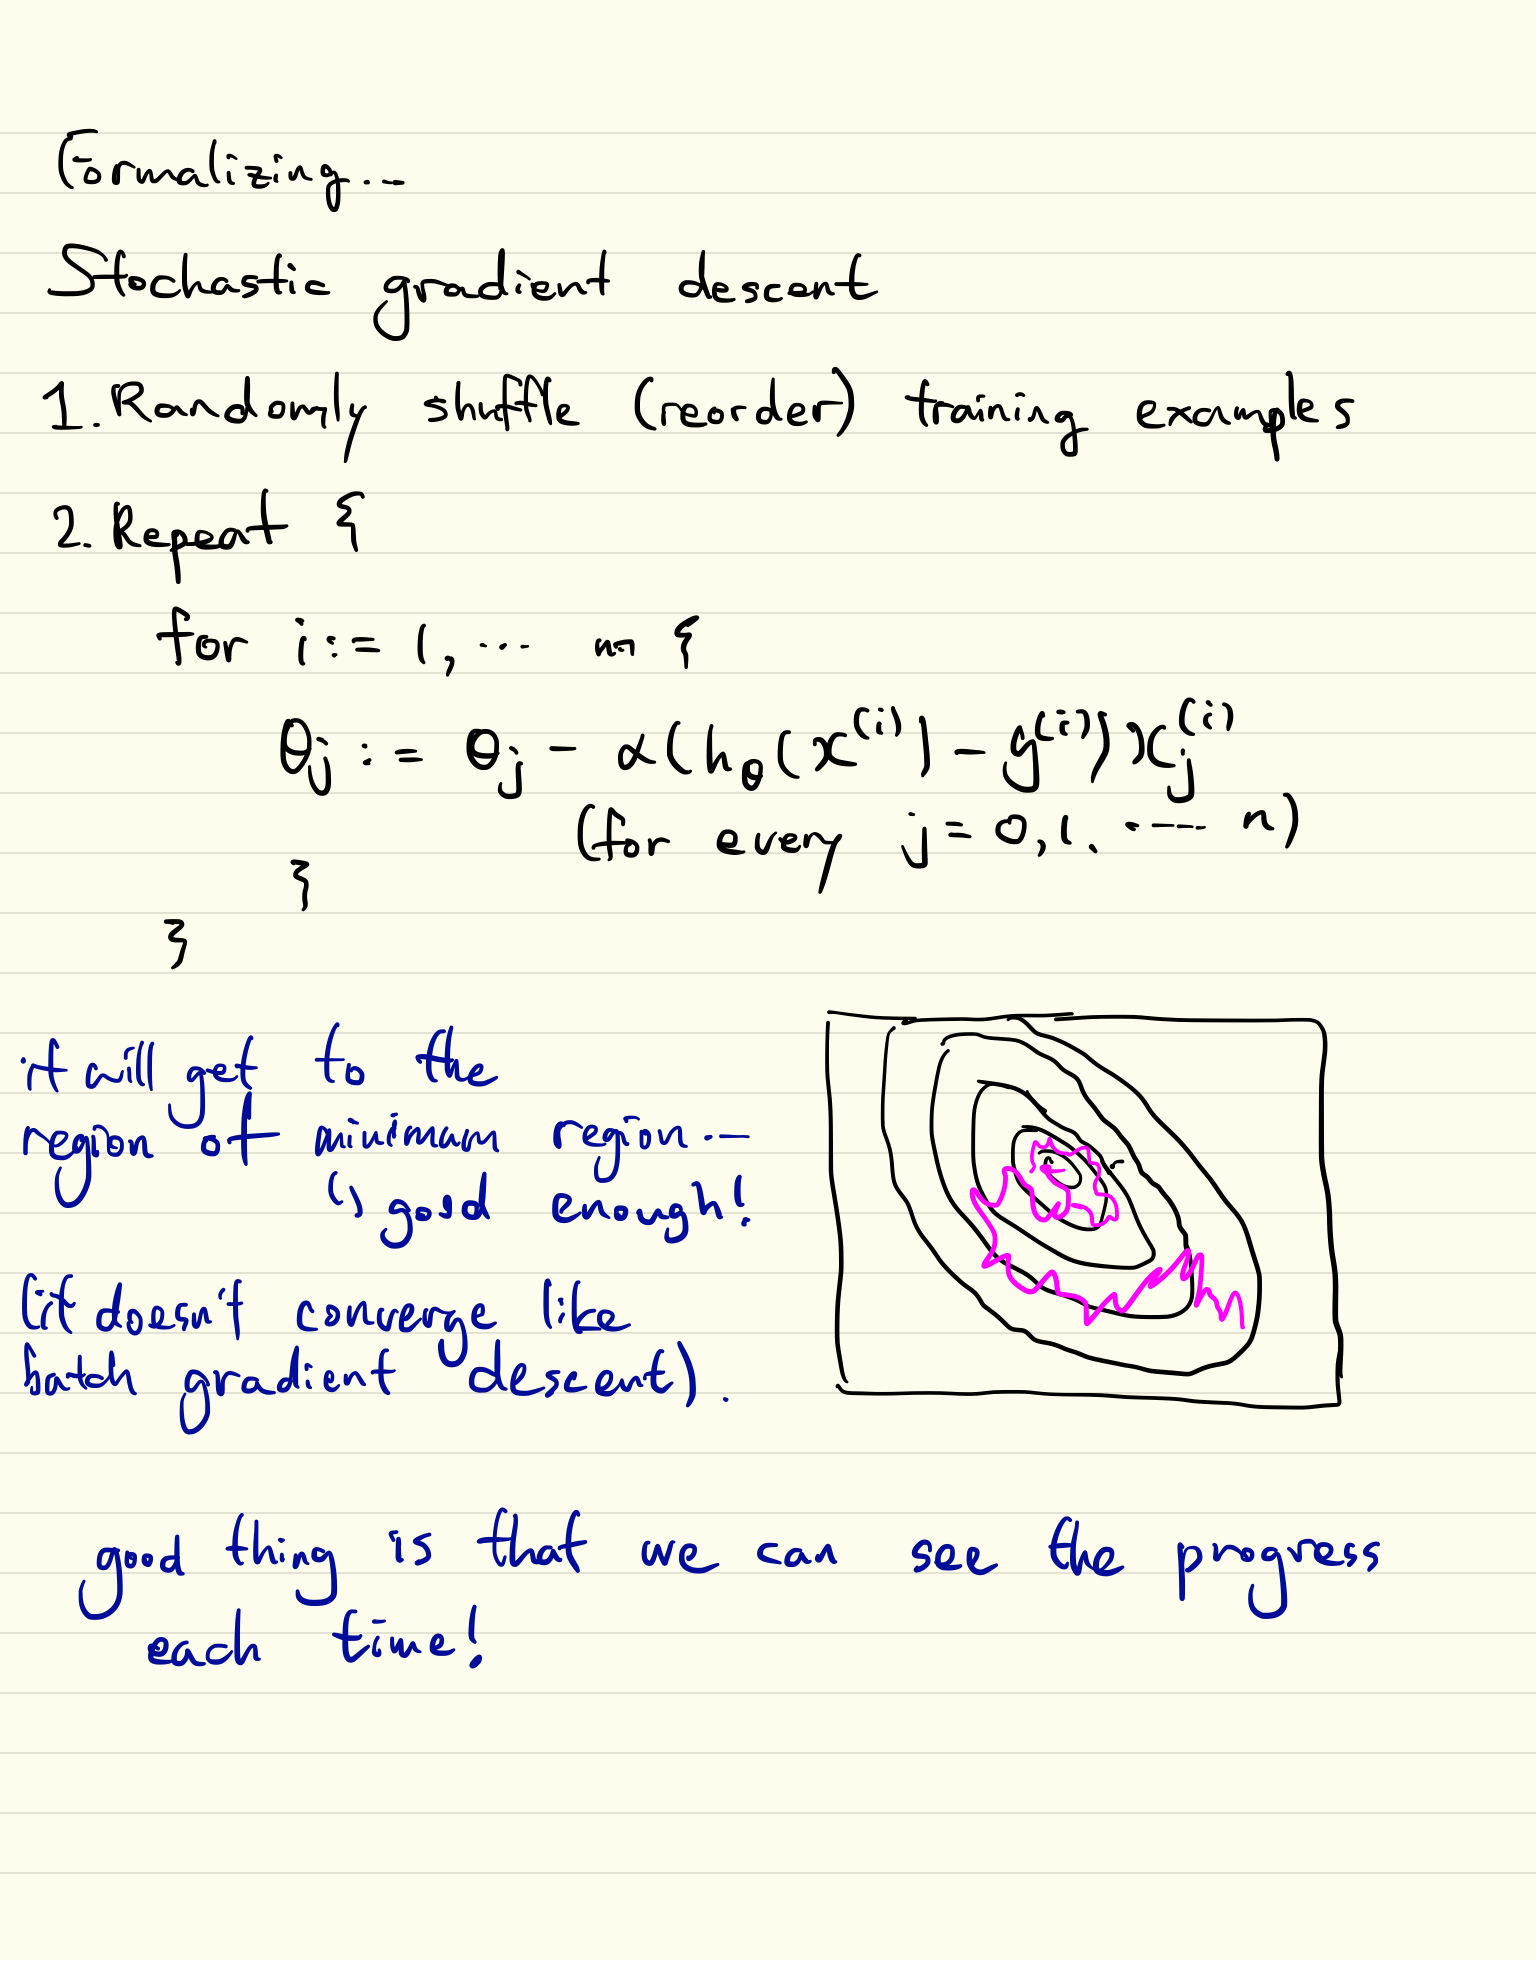 Formalizing...
Stochastic gradient descent
1. Randomly shuffle (reorder) training examples
2. Repeat {
for i := 1, ... m {
θj := θj - α(hθ(x^(i)) - y^(i)) xj^(i)
(for every j = 0, 1, ... n)
}
}
it will get to the
region of minimum region...
↳ good enough!
(it doesn't converge like
batch gradient descent).
good thing is that we can see the progress
each time!